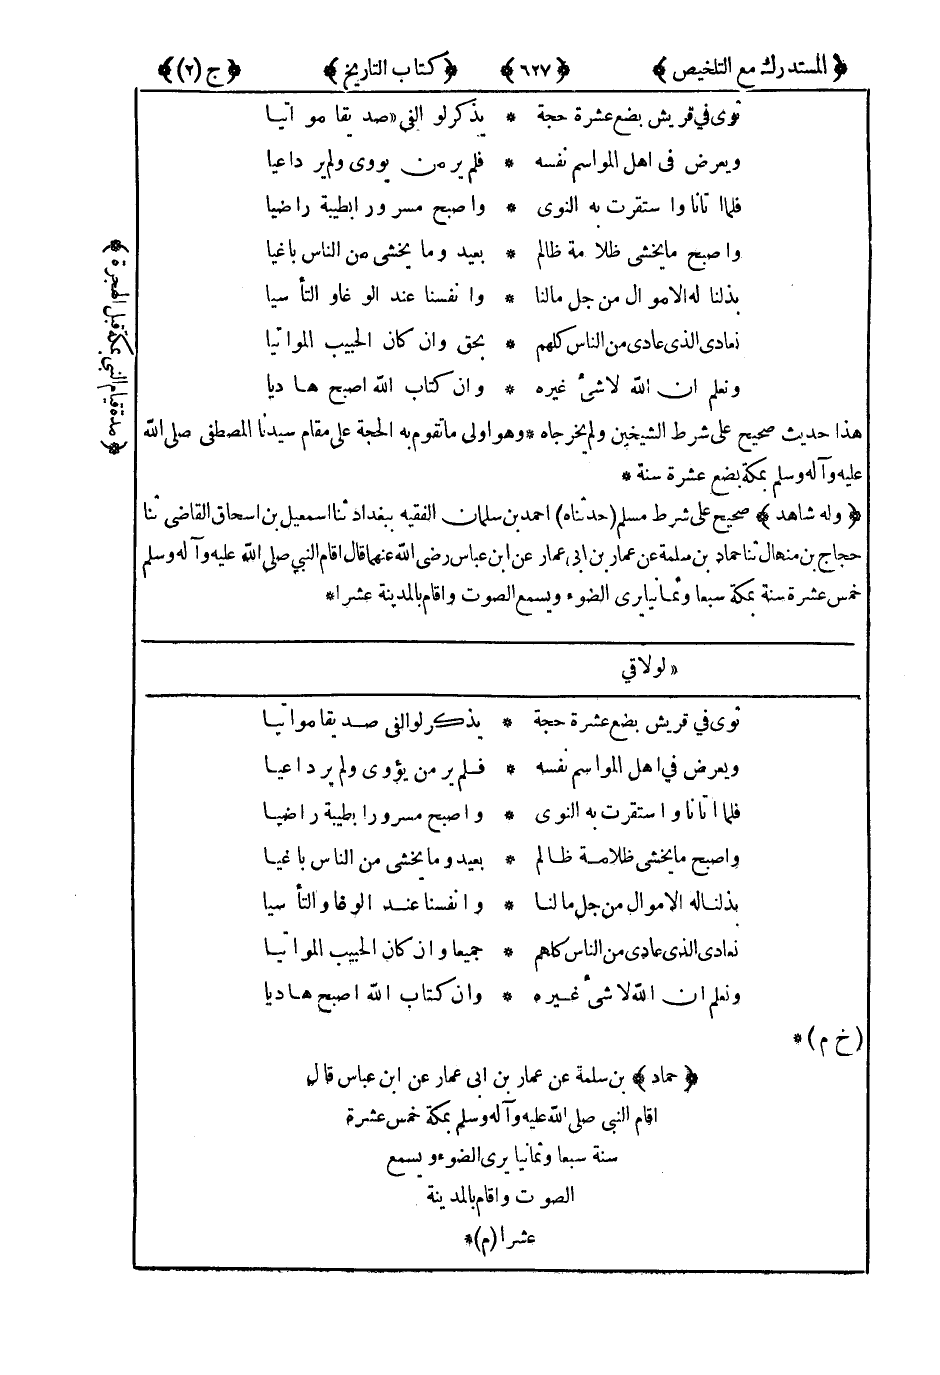 ﴿المستدرك مع التلخيص﴾ ﴿٦٢٧﴾ ﴿كتاب التاريخ﴾ ﴿ج (٢)﴾
ثوى في قريش بضع عشرة حجة * يذكر لو الفى «صديقا مواتيا
ويعرض فى اهل المواسم نفسه * فلم ير من يووى ولم ير داعيا
فلما اتانا واستقرت به النوى * واصبح مسرورا بطيبة راضيا
واصبح ما يخشى ظلامة ظالم * بعيد وما يخشى من الناس باغيا
بذلنا له الاموال من جل مالنا * وانفسنا عند الوغا والتأسيا
نعادى الذى عادى من الناس كلهم * بحق وان كان الحبيب المواتيا
ونعلم ان الله لا شئ غيره * وان كتاب الله اصبح هاديا
هذا حديث صحيح على شرط الشيخين ولم يخرجاه * وهو اولى ما تقوم به الحجة على مقام سيدنا المصطفى صلى الله
عليه وآله وسلم بمكة بضع عشرة سنة *
﴿وله شاهد﴾ صحيح على شرط مسلم (حدثناه) احمد بن سلمان الفقيه ببغداد ثنا اسمعيل بن اسحاق القاضى ثنا
حجاج بن منهال ثنا حماد بن سلمة عن عمار بن ابى عمار عن ابن عباس رضى الله عنهما قال اقام النبي صلى الله عليه وآله وسلم
خمس عشرة سنة بمكة سبعا وثمانيا يرى الضوء ويسمع الصوت واقام بالمدينة عشرا *
﴿مدة قيام النبي بمكة قبل الهجرة﴾
« لو لاقي
ثوى في قريش بضع عشرة حجة * يذكر لو الفى صديقا مواتيا
ويعرض في اهل المواسم نفسه * فلم ير من يؤوى ولم ير داعيا
فلما اتانا واستقرت به النوى * واصبح مسرورا بطيبة راضيا
واصبح ما يخشى ظلامة ظالم * بعيد وما يخشى من الناس باغيا
بذلنا له الاموال من جل مالنا * وانفسنا عند الوفا والتأسيا
نعادى الذى عادى من الناس كلهم * جميعا وان كان الحبيب المواتيا
ونعلم ان الله لا شئ غيره * وان كتاب الله اصبح هاديا
(خ م) *
﴿حماد﴾ بن سلمة عن عمار بن ابى عمار عن ابن عباس قال
اقام النبي صلى الله عليه وآله وسلم بمكة خمس عشرة
سنة سبعا وثمانيا يرى الضوء ويسمع
الصوت واقام بالمدينة
عشرا (م) *